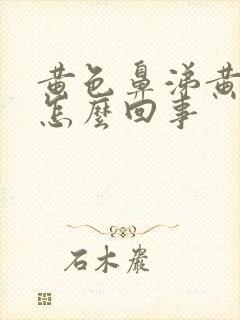 黄色鼻涕黄
怎麼回事
石木巖